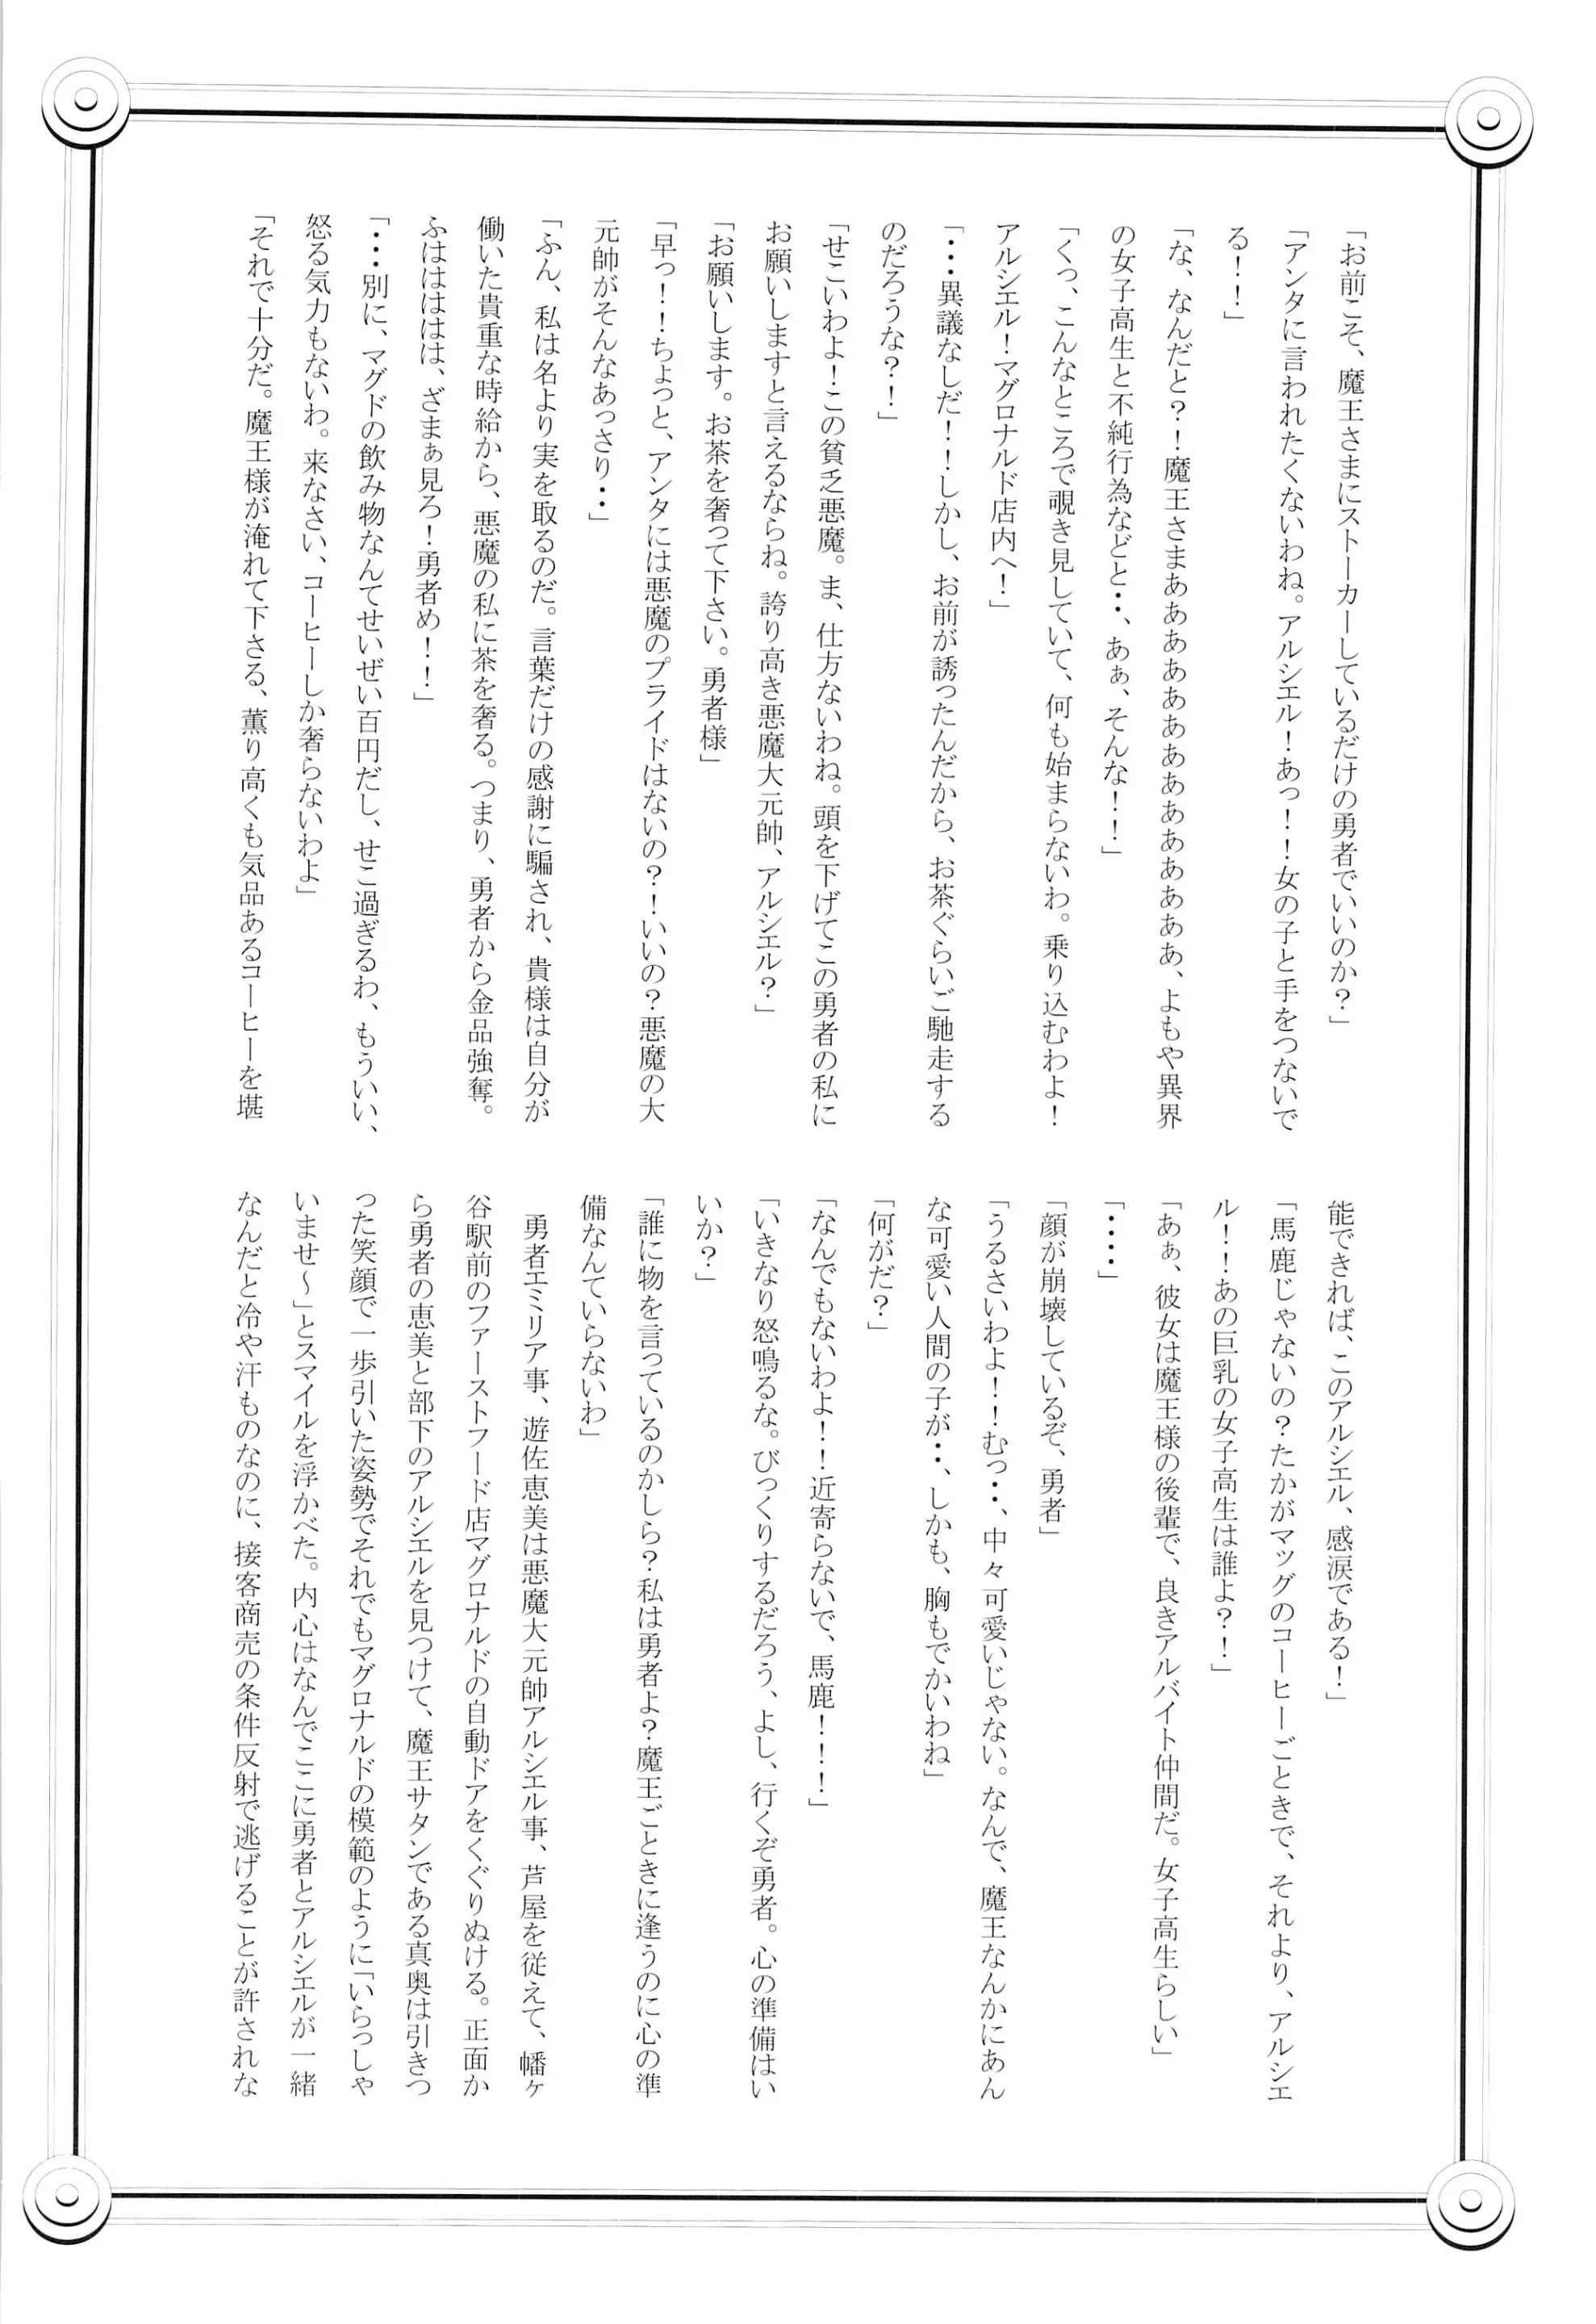 「お前こそ、魔王さまにストーカーしているだけの勇者でいいのか？」
「アンタに言われたくないわね。アルシエル！あっ！！女の子と手をつないで
る！！」
「な、なんだと？！魔王さまあああああああああああああ、よもや異界
の女子高生と不純行為などと・・、あぁ、そんな！！」
「くっ、こんなところで覗き見していて、何も始まらないわ。乗り込むわよ！
アルシエル！マグロナルド店内へ！」
「・・・異議なしだ！！しかし、お前が誘ったんだから、お茶ぐらいご馳走する
のだろうな？！」
「せこいわよ！この貧乏悪魔。ま、仕方ないわね。頭を下げてこの勇者の私に
お願いしますと言えるならね。誇り高き悪魔大元帥、アルシエル？」
「お願いします。お茶を奢って下さい。勇者様」
「早っ！！ちょっと、アンタには悪魔のプライドはないの？！いいの？悪魔の大
元帥がそんなあっさり・・」
「ふん、私は名より実を取るのだ。言葉だけの感謝に騙され、貴様は自分が
働いた貴重な時給から、悪魔の私に茶を奢る。つまり、勇者から金品強奪。
ふはははは、ざまぁ見ろ！勇者め！！」
「・・・別に、マグドの飲み物なんてせいぜい百円だし、せこ過ぎるわ、もういい、
怒る気力もないわ。来なさい、コーヒーしか奢らないわよ」
「それで十分だ。魔王様が淹れて下さる、薫り高くも気品あるコーヒーを堪
能できれば、このアルシエル、感涙である！」
「馬鹿じゃないの？たかがマッグのコーヒーごときで、それより、アルシエ
ル！！あの巨乳の女子高生は誰よ？！」
「あぁ、彼女は魔王様の後輩で、良きアルバイト仲間だ。女子高生らしい」
「・・・・」
「顔が崩壊しているぞ、勇者」
「うるさいわよ！！むっ・・、中々可愛いじゃない。なんで、魔王なんかにあん
な可愛い人間の子が・・、しかも、胸もでかいわね」
「何がだ？」
「なんでもないわよ！！近寄らないで、馬鹿！！！」
「いきなり怒鳴るな。びっくりするだろう、よし、行くぞ勇者。心の準備はい
いか？」
「誰に物を言っているのかしら？私は勇者よ？魔王ごときに逢うのに心の準
備なんていらないわ」
　勇者エミリア事、遊佐恵美は悪魔大元帥アルシエル事、芦屋を従えて、幡ヶ
谷駅前のファーストフード店マグロナルドの自動ドアをくぐりぬける。正面か
ら勇者の恵美と部下のアルシエルを見つけて、魔王サタンである真奥は引きつ
った笑顔で一歩引いた姿勢でそれでもマグロナルドの模範のように「いらっしゃ
いませ～」とスマイルを浮かべた。内心はなんでここに勇者とアルシエルが一緒
なんだと冷や汗ものなのに、接客商売の条件反射で逃げることが許されな